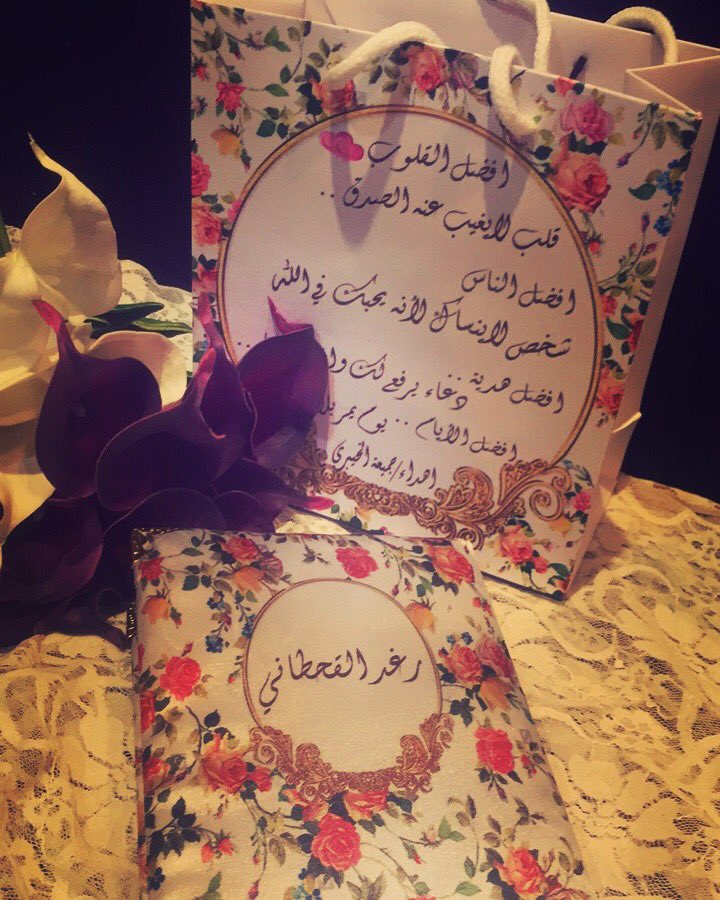 افضل القلوب
قلب لايغيب عنه الصدق ..
افضل الناس
شخص لاينساك لأنه يحبك في الله
افضل هدية دعاء يرفع لك
افضل الأيام .. يوم يمر
اهداء/جميعة الخيري
رغد القحطاني